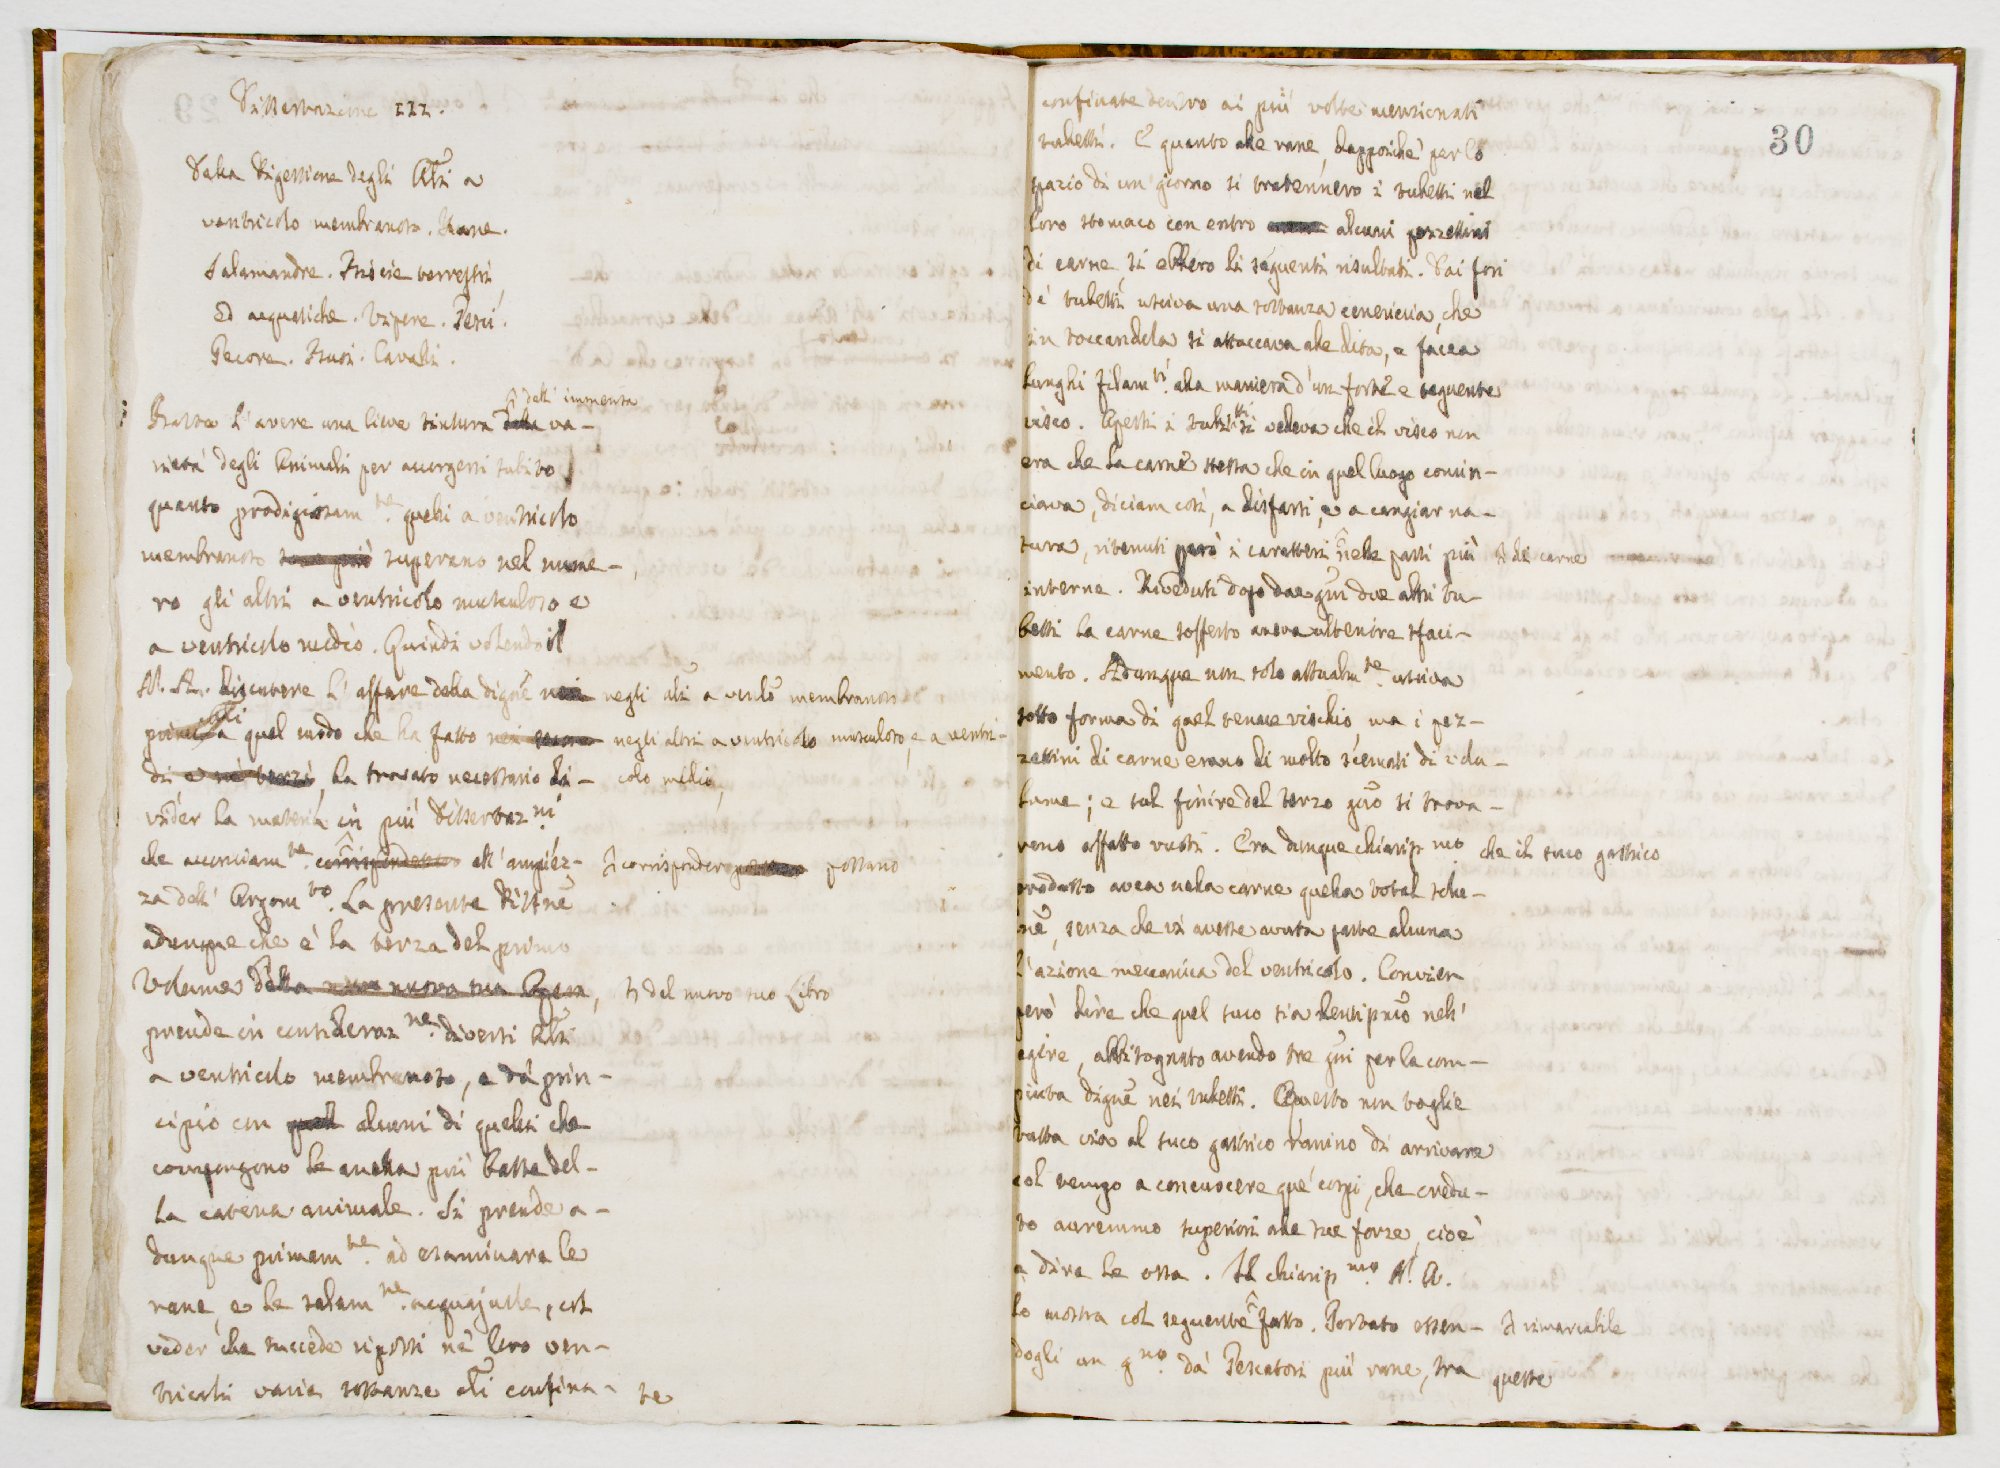 Dissertazione III.
Della Digestione degli Ali a
ventricolo membranoso. Rane.
Salamandre. Biscie terrestri,
ed acquatiche. Vipere. Pesci.
Pecore. Buoi. Cavalli.
dell' immensa
Basta l'avere una lieve tintura della va-
rietà degli Animali per accorgersi subito
quanto prodigiosam.te quelli a ventricolo
membranoso superano nel nume-
ro gli altri a ventricolo muscoloso e
a ventricolo medio. Quindi volendo il
N. A. discutere l'affare della digne negli ali a venlo membranoso
a quel modo che ha fatto negli altri a ventricolo muscoloso, e a ventri-
di e nè terzi, ha trovato necessario di- colo medio,
vider la materia in più Dissertaz.ni
che acconciam.te corrispondano all'ampiez- corrispondere possano
za dell' Argom.to. La presente Dissne
adunque che è la terza del primo
Volume della nuova sua Opera, del nuovo suo Libro
prende in consideraz.ne diversi Ali
a ventricolo membranoso, e dà prin-
cipio con alcuni di quelli che
compongono le anella più basse del-
la catena animale. Si prende a-
dunque primam.te ad esaminare le
rane, e le salam.ne acquajuole, col
veder che succede riposti nè loro ven-
tricoli varie sostanze ali confina- te
30
confinate dentro ai più volte menzionati
tubetti. E quanto alle rane, dappoichè per lo
spazio di un giorno si tratennero i tubetti nel
loro stomaco con entro alcuni pezzettini
di carne si ebbero li seguenti risultati. Dai fori
de' tubetti usciva una sostanza cenericcia, che
in toccandola si attaccava alle dita, e facea
lunghi filam.ti alla maniera d'un forte e tegnente
visco. Aperti i tubi.tti si vedeva che il visco non
era che la carne stessa che in quel luogo comin-
ciava, diciam così, a disfarsi, e a cangiar na-
tura, ritenuti però i caratteri nelle parti più di carne
interne. Riveduti dopo due gni due altri tu-
betti la carne sofferto aveva ulteriore sfaci-
mento. Adunque non solo attualm.te usciva
sotto forma di quel tenace vischio, ma i pez-
zettini di carne erano di molto scemati di volu-
lume; e sul finire del terzo gno si trova-
rono affatto vuoti. Era dunque chiariss.mo che il suco gastrico
prodotto avea nella carne quella total solu-
ne, senza che vi avesse avuta parte alcuna
l'azione meccanica del ventricolo. Convien
però dire che quel suco sia lentissmo nell'
agire, abbisognato avendo tre gni per la com-
piuta digne nei tubetti. Questo non toglie
tutta via al suco gastrico ranino di arrivare
col tempo a conquocere que' corpi, che credu-
to avremmo superiori alle sue forze, cioè
a dire le ossa. Il chiariss.mo N. A.
lo mostra col seguente fatto. Portato essen- rimarcabile
dogli un g.no dà Pescatori più rane, tra queste